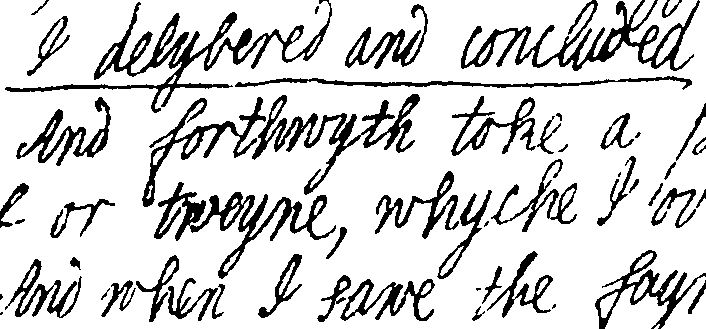 I delybered and concluded
And forthwyth toke a
or tweyne, whyche I
And when I sawe the